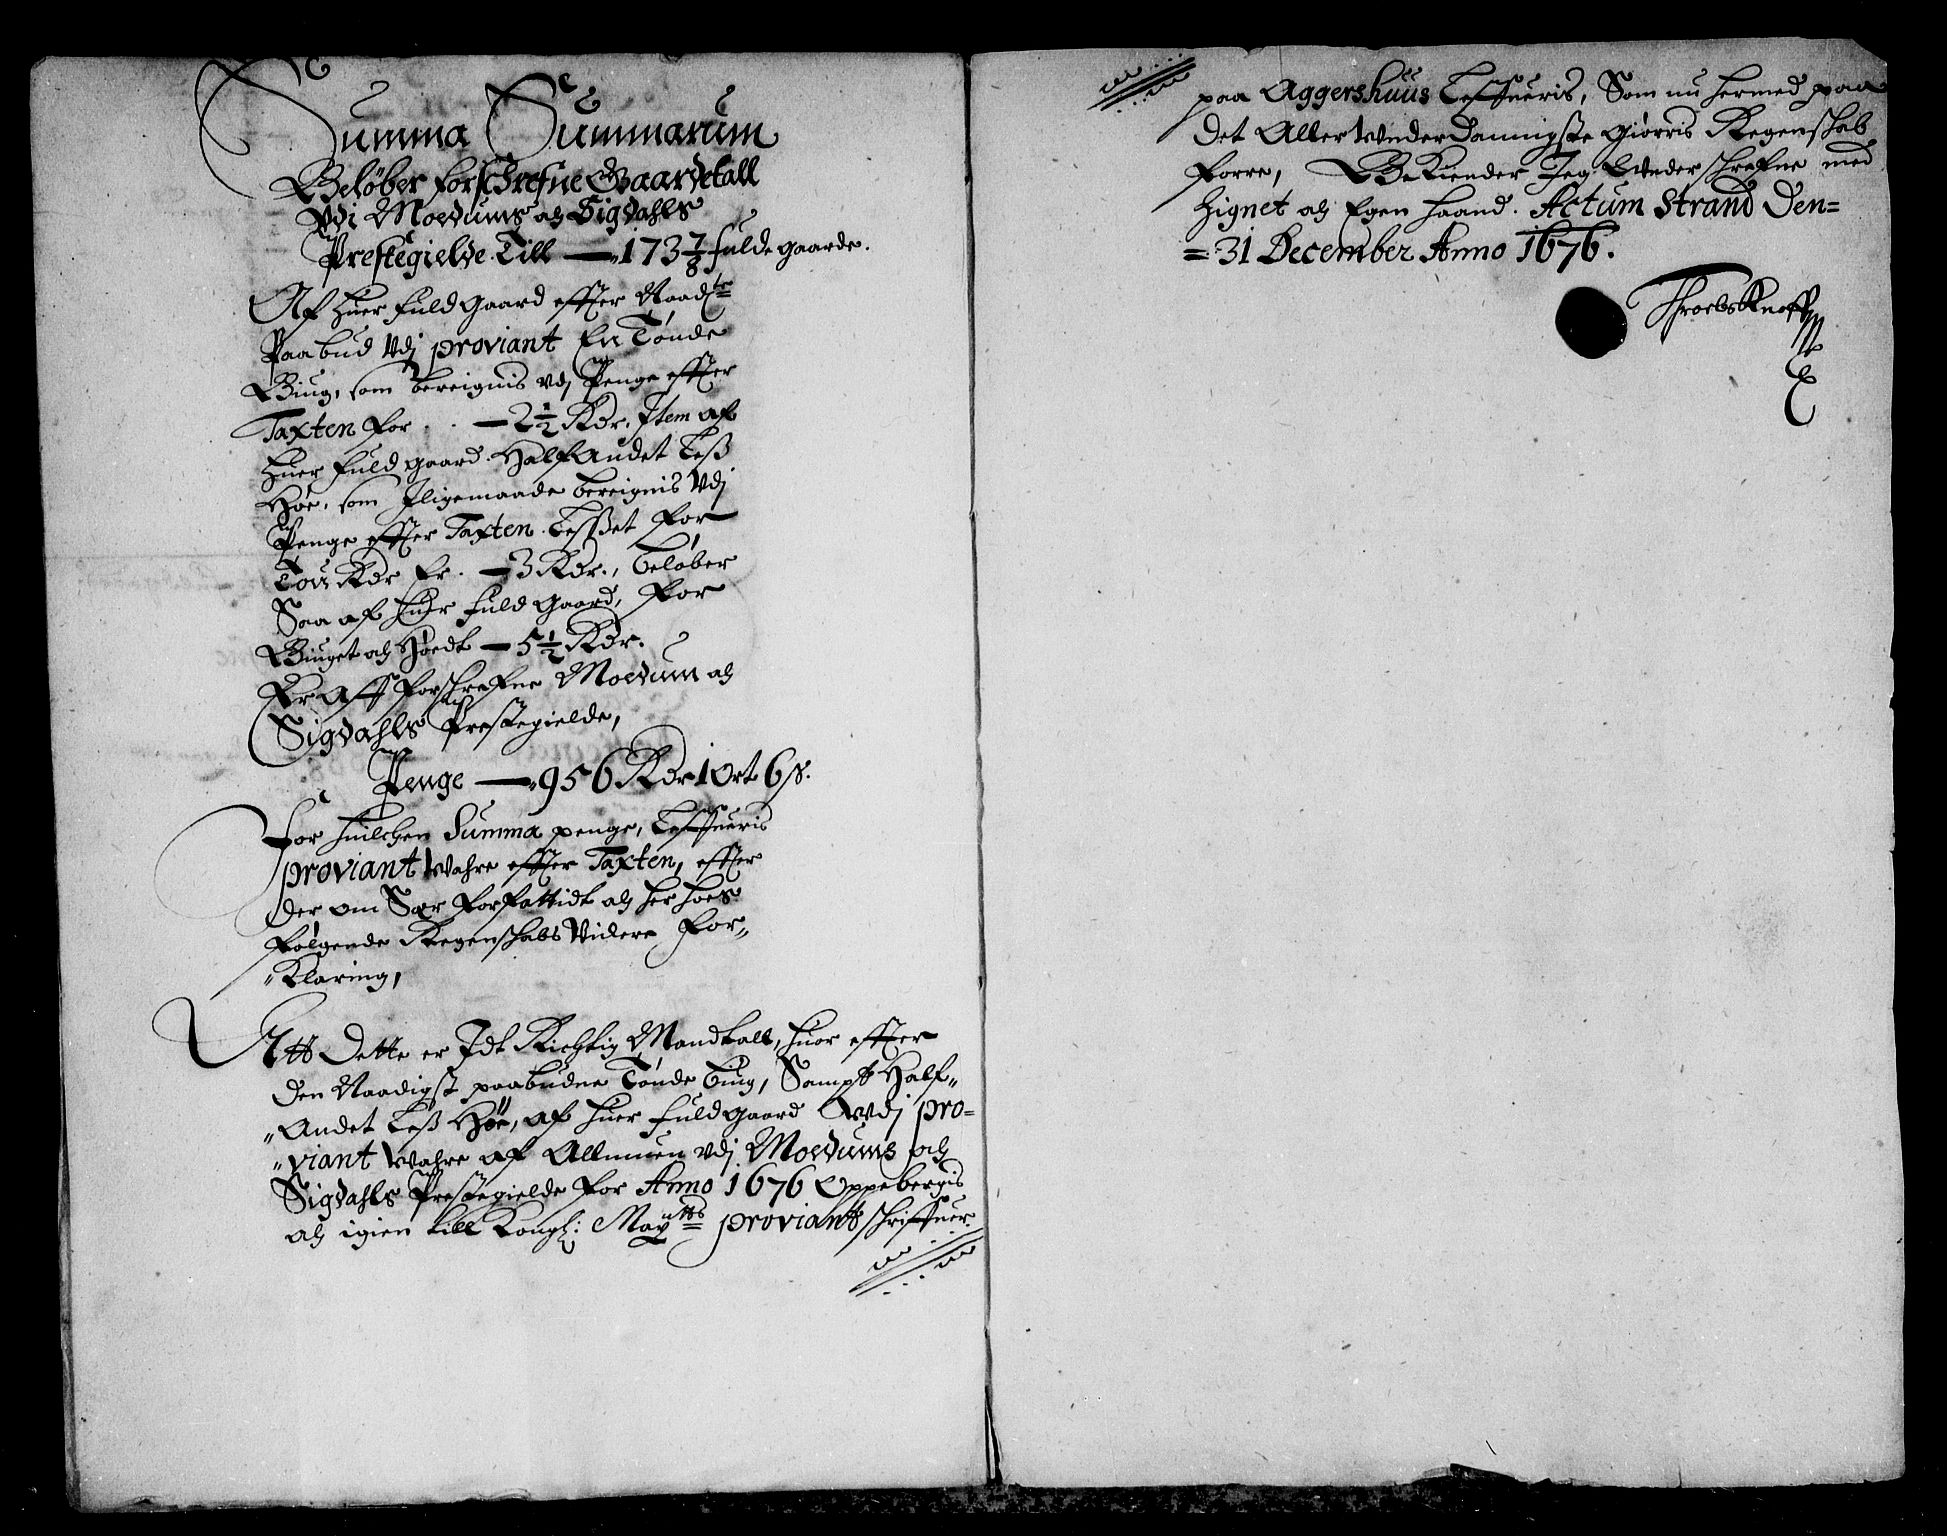 Summa Summarum
Beløber forschrefne Gaardetall
Vdi Moedums och Sigdahls
Prestegielde Till — 173 7/8 fulde gaarde.
Af huer fuld gaard effter Naadte
Paabud Vdj proviant En Tønde
Biug, som bereignis vdj Penge effter
Taxten for . . — 2 1/2 Rdr. Jtem af
huer fuld gaard Half Andet Leß
Høe, som Jligemaade bereignis Vdj
Penge effter Taxten Leßet for
Tou Rdr Er. — 3 Rdr., beløber
Saa af huer fuld Gaard, for
Biuget och Høedt — 5 1/2 Rdr.
Er aff forschrefne Moedum och
Sigdahls Prestegielde,
Penge — 956 Rdr 1 Ort 6 s.
For huilchen Summa penge, Leffueris
proviant Wahre effter Taxten, effter
der om Sær forfattidt och her hoes
følgende Regenschabs Videre for„
„Klaring,
Att Dette er Jdt Richtig Mandtall, huor effter
den Naadigst paabudne Tønde biug, Sampt Half„
„Andet Leß Høe, af huer fuld gaard Vdj pro=
„viant Wahre af Allmuen vdj Moedums och
Sigdahls Prestegielde for Anno 1676 Oppebergis
och igien till Kongl: Maytts proviant schriffuer
paa Aggershuus Leffueris, Som nu hermed paa
det Aller Vnderdannigste giørris Regenschab
forre, BeKiender Jeg Vnderschrefne med
Zignet och Egen haand. Actum Strand Den=
=31 December Anno 1676.